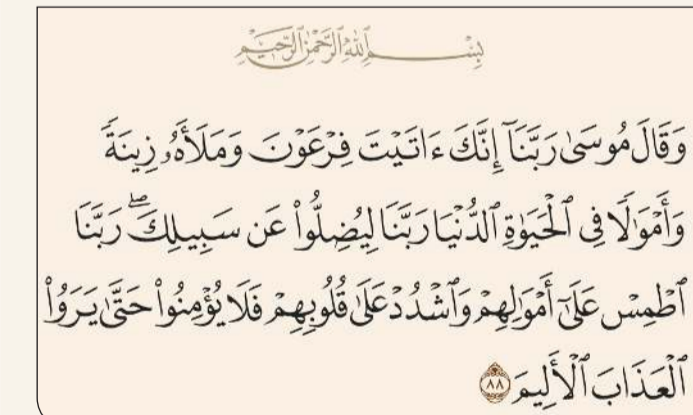 بِسْمِ ٱللَّهِ ٱلرَّحْمَٰنِ ٱلرَّحِيمِ
وَقَالَ مُوسَىٰ رَبَّنَآ إِنَّكَ ءَاتَيْتَ فِرْعَوْنَ وَمَلَأَهُۥ زِينَةً
وَأَمْوَٰلًا فِى ٱلْحَيَوٰةِ ٱلدُّنْيَا رَبَّنَا لِيُضِلُّوا۟ عَن سَبِيلِكَ ۖ رَبَّنَا
ٱطْمِسْ عَلَىٰٓ أَمْوَٰلِهِمْ وَٱشْدُدْ عَلَىٰ قُلُوبِهِمْ فَلَا يُؤْمِنُوا۟ حَتَّىٰ يَرَوُا۟
ٱلْعَذَابَ ٱلْأَلِيمَ ٨٨